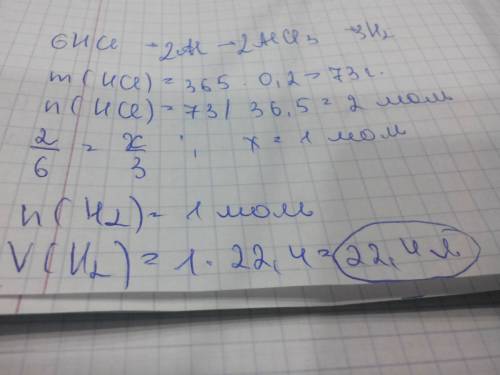 6HCl → 2Al → 2AlCl3 3H2
m(HCl) = 365 · 0,2 = 73 г.
n(HCl) = 73 / 36,5 = 2 моль
2/6 = x/3 ; x = 1 моль
n(H2) = 1 моль
V(H2) = 1 · 22,4 = 22,4 л